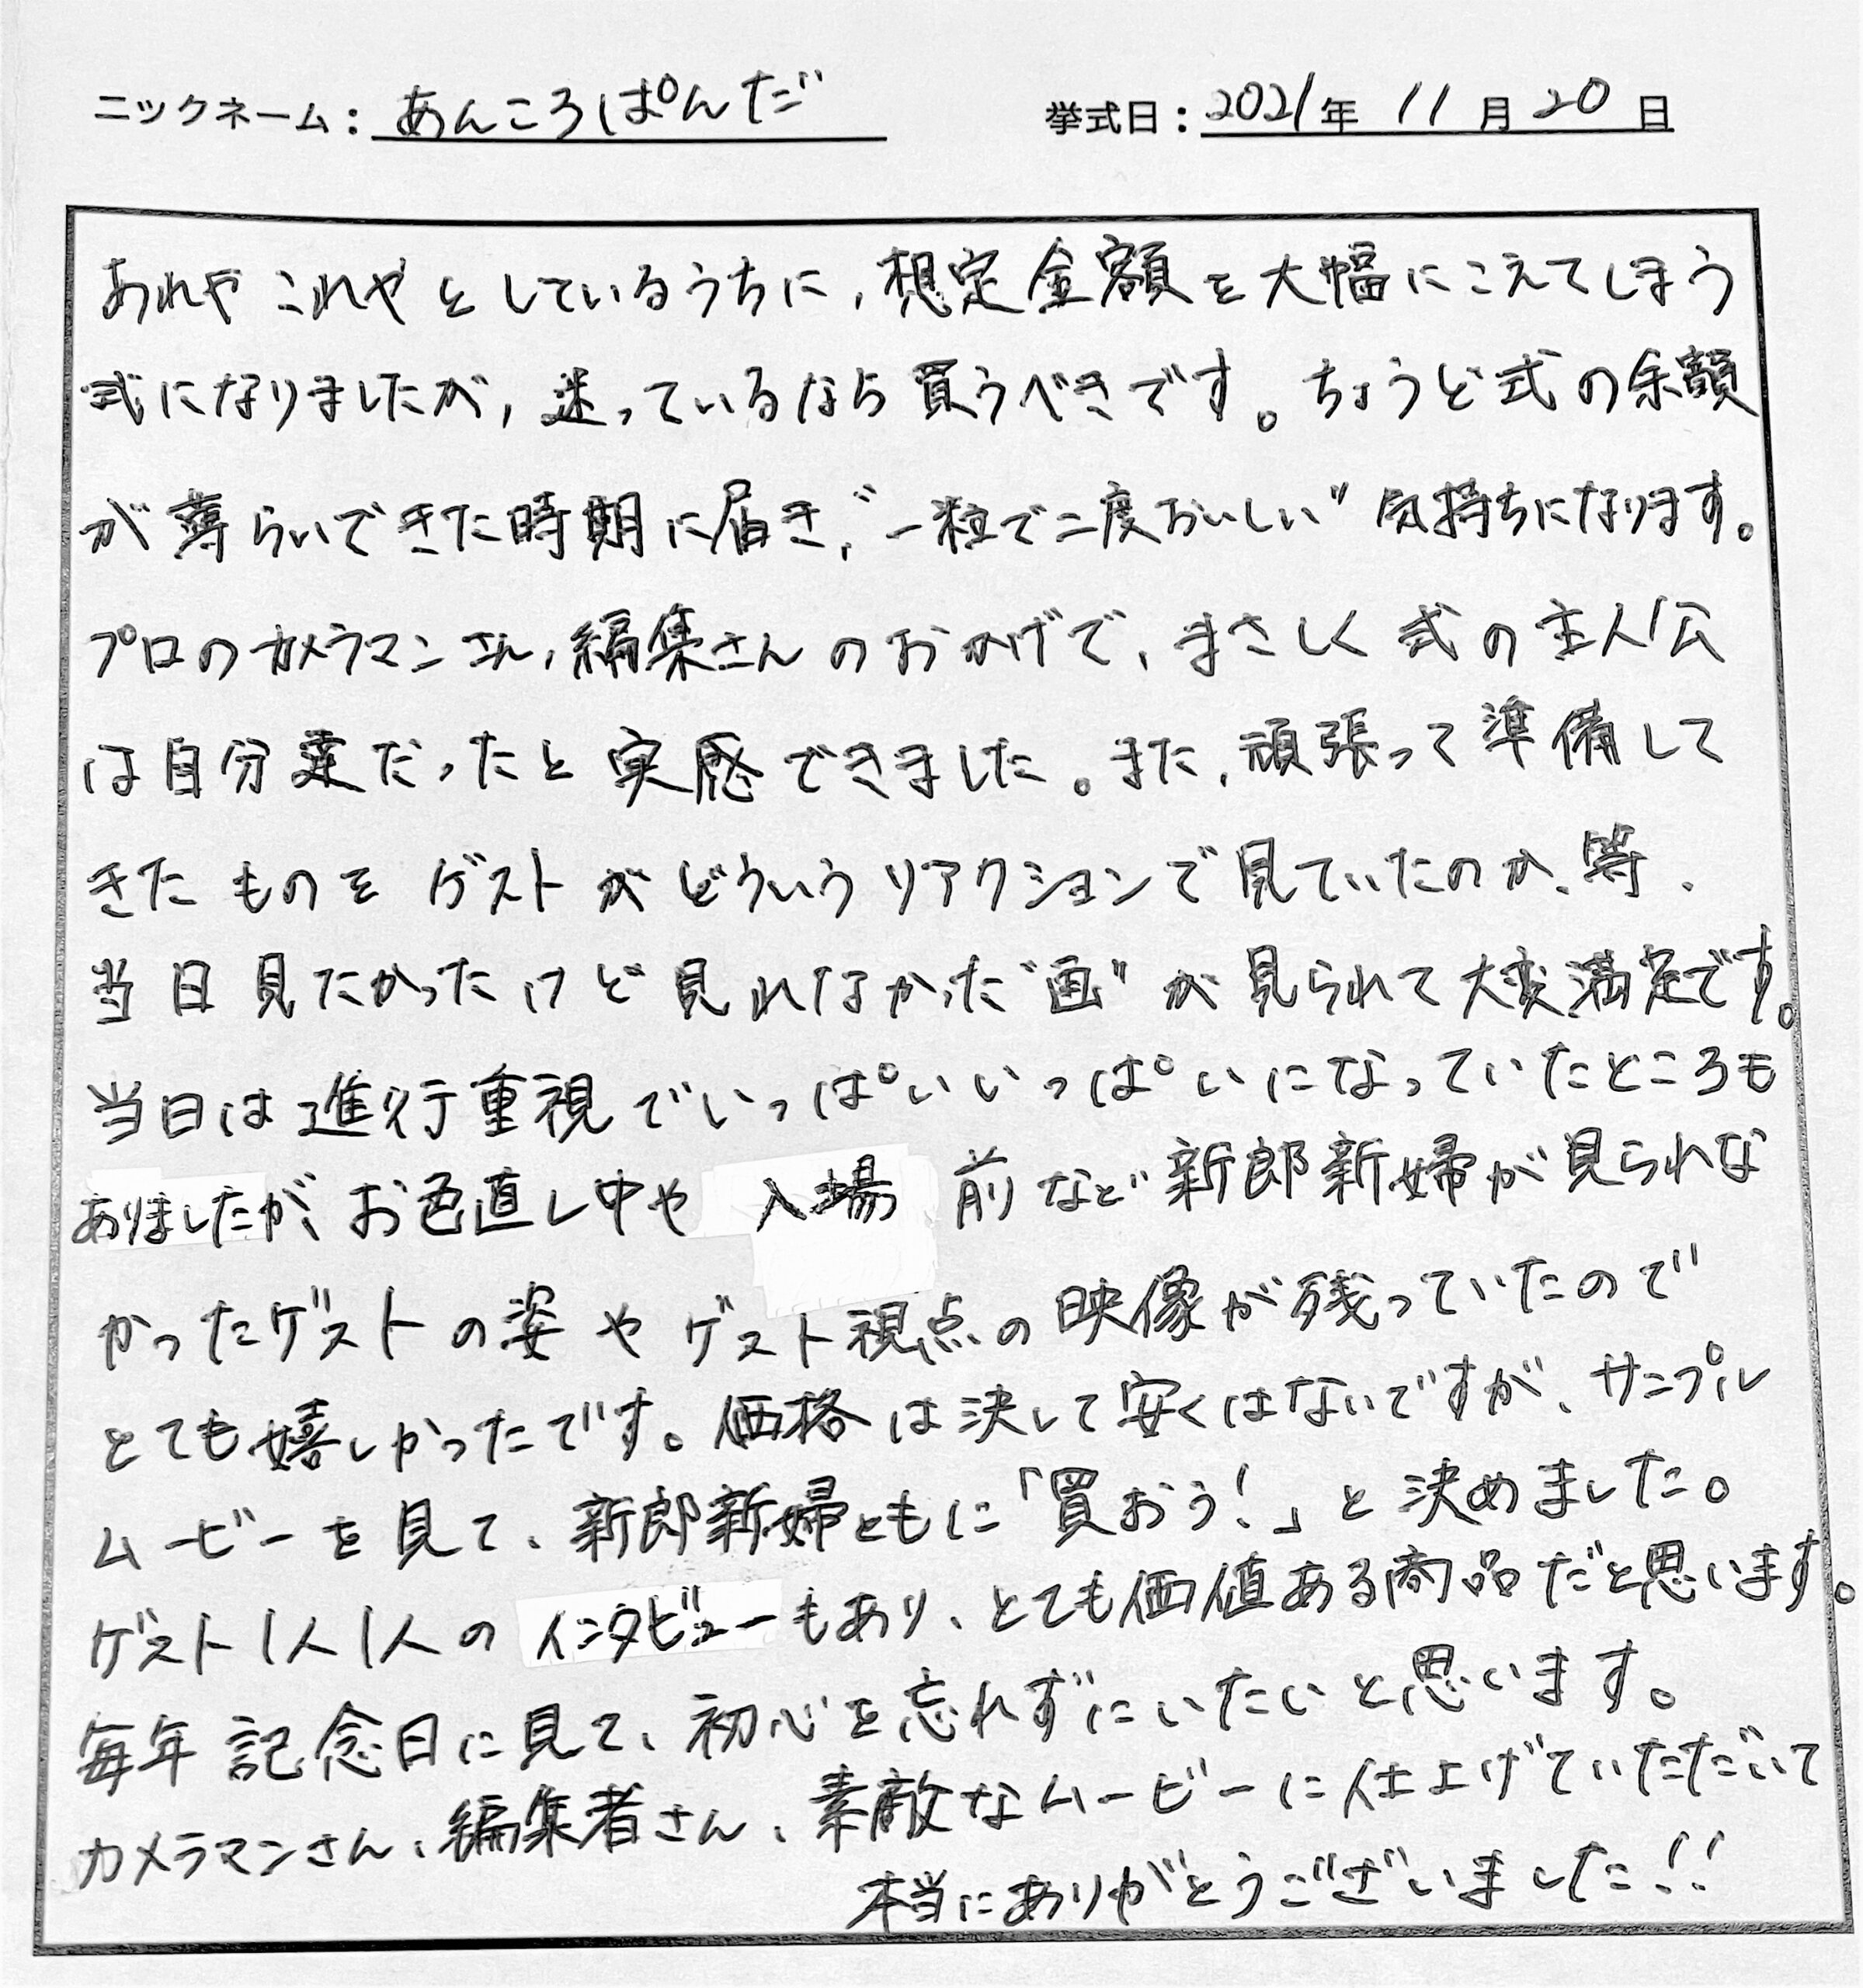 ニックネーム：あんころぱんだ 挙式日：2021年 11月20日
あれやこれやとしているうちに、想定金額を大幅にこえてしまう
式になりましたが、迷っているなら買うべきです。ちょうど式の余韻
が薄らいできた時期に届き、“一粒で二度おいしい”気持ちになります。
プロのカメラマンさん、編集さんのおかげで、まさしく式の主人公
は自分達だったと実感できました。また、頑張って準備して
きたものをゲストがどういうリアクションで見ていたのか、等、
当日見たかったけど見れなかった“画”が見られて大変満足です。
当日は進行重視でいっぱいいっぱいになっていたところも
ありましたが、お色直し中や入場前など新郎新婦が見られな
かったゲストの姿やゲスト視点の映像が残っていたので
とても嬉しかったです。価格は決して安くはないですが、サンプル
ムービーを見て、新郎新婦ともに「買おう！」と決めました。
ゲスト1人1人のインタビューもあり、とても価値ある商品だと思います。
毎年記念日に見て、初心を忘れずにいたいと思います。
カメラマンさん、編集者さん、素敵なムービーに仕上げていただいて
本当にありがとうございました！！